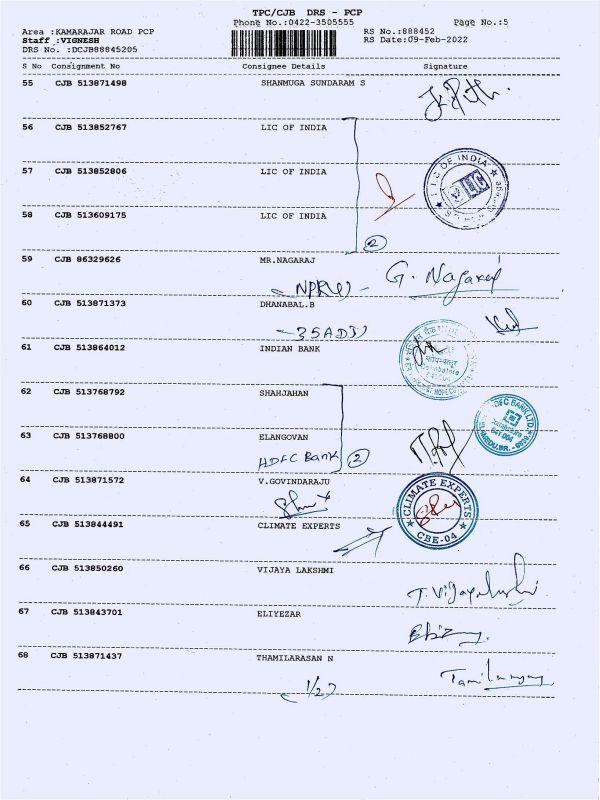 TPC/CJB DRS - PCP
Phone No.:0422-3505555 Page No.:5
Area :KAMARAJAR ROAD PCP RS No.:888452
Staff :VIGNESH RS Date:09-Feb-2022
DRS No. :DCJB88845205
S No Consignment No Consignee Details Signature
55 CJB 513871498 SHANMUGA SUNDARAM S
56 CJB 513852767 LIC OF INDIA
57 CJB 513852806 LIC OF INDIA
LIC OF INDIA
58 CJB 513609175 LIC OF INDIA
2
59 CJB 86329626 MR.NAGARAJ
G. Nagaraj
60 CJB 513871373 DHANABAL.B
61 CJB 513864012 INDIAN BANK
Coimbatore
62 CJB 513768792 SHAHJAHAN
HDFC BANK LTD.
63 CJB 513768800 ELANGOVAN
HDFC Bank 2
64 CJB 513871572 V.GOVINDARAJU
CLIMATE EXPERTS
CBE-04
65 CJB 513844491 CLIMATE EXPERTS
66 CJB 513850260 VIJAYA LAKSHMI
T. Vijayalakshmi
67 CJB 513843701 ELIYEZAR
68 CJB 513871437 THAMILARASAN N